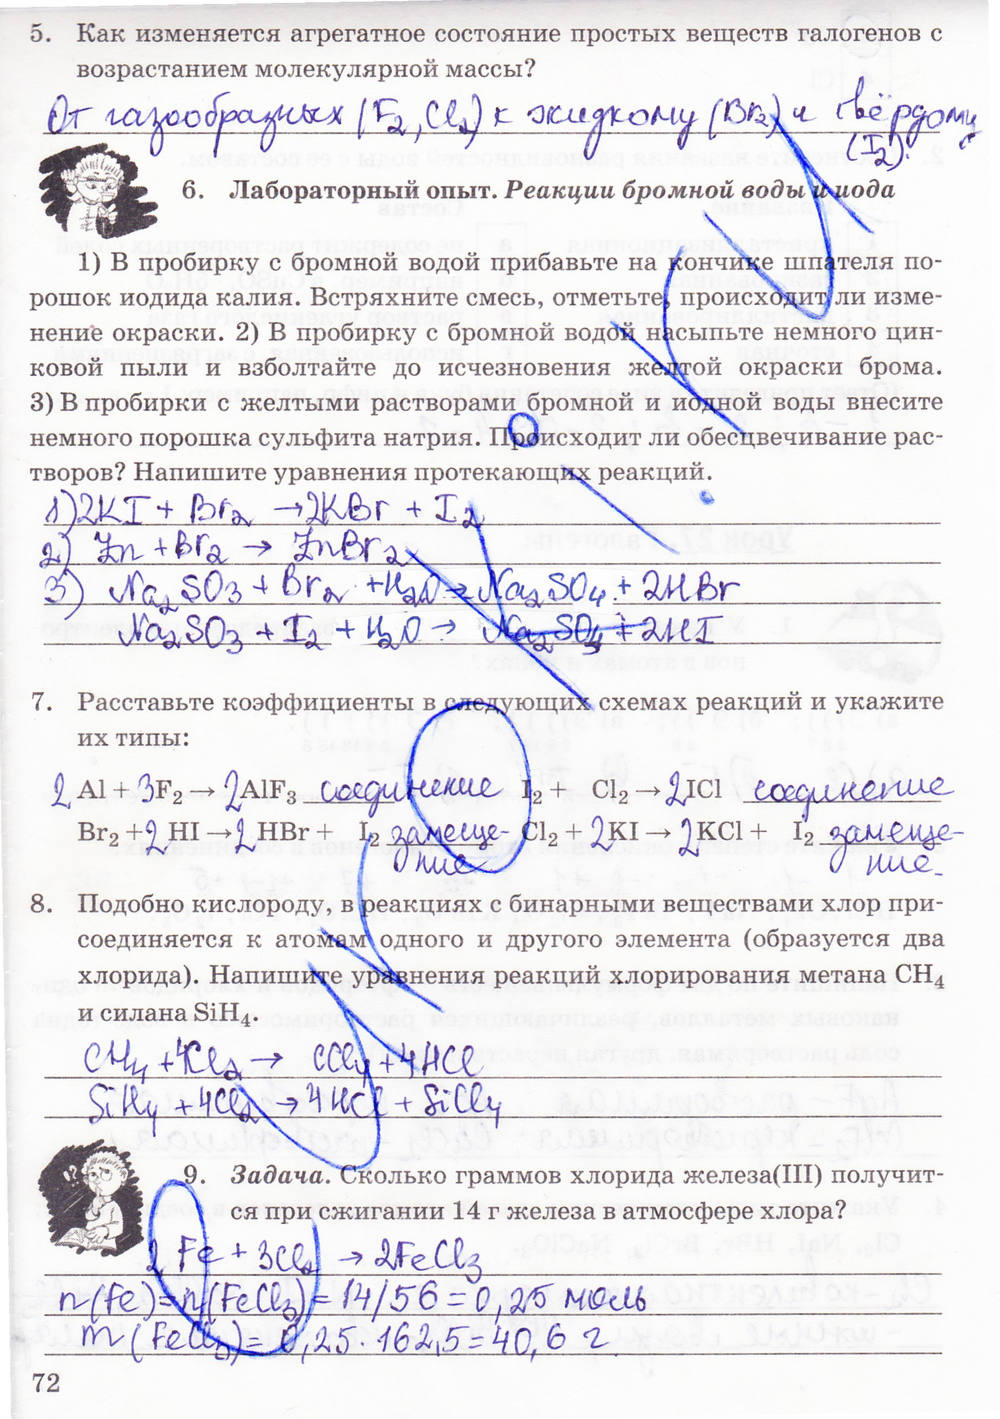 5. Как изменяется агрегатное состояние простых веществ галогенов с
возрастанием молекулярной массы?
От газообразных (F₂, Cl₂) к жидкому (Br₂) и твёрдому
(I₂).
6. Лабораторный опыт. Реакции бромной воды и иода
1) В пробирку с бромной водой прибавьте на кончике шпателя по-
рошок иодида калия. Встряхните смесь, отметьте, происходит ли изме-
нение окраски. 2) В пробирку с бромной водой насыпьте немного цин-
ковой пыли и взболтайте до исчезновения желтой окраски брома.
3) В пробирки с желтыми растворами бромной и иодной воды внесите
немного порошка сульфита натрия. Происходит ли обесцвечивание рас-
творов? Напишите уравнения протекающих реакций.
1) 2KI + Br₂ → 2KBr + I₂
2) Zn + Br₂ → ZnBr₂
3) Na₂SO₃ + Br₂ + H₂O → Na₂SO₄ + 2HBr
Na₂SO₃ + I₂ + H₂O → Na₂SO₄ + 2HI
7. Расставьте коэффициенты в следующих схемах реакций и укажите
их типы:
2 Al + 3F₂ → 2AlF₃ соединение I₂ + Cl₂ → 2ICl соединение
Br₂ + 2 HI → 2 HBr + I₂ замеще- Cl₂ + 2KI → 2KCl + I₂ замеще-
ние ние.
8. Подобно кислороду, в реакциях с бинарными веществами хлор при-
соединяется к атомам одного и другого элемента (образуется два
хлорида). Напишите уравнения реакций хлорирования метана CH₄
и силана SiH₄.
CH₄ + 4Cl₂ → CCl₄ + 4HCl
SiH₄ + 4Cl₂ → 4HCl + SiCl₄
9. Задача. Сколько граммов хлорида железа(III) получит-
ся при сжигании 14 г железа в атмосфере хлора?
2 Fe + 3Cl₂ → 2FeCl₃
n(Fe) = n(FeCl₃) = 14/56 = 0,25 моль
m(FeCl₃) = 0,25 · 162,5 = 40,6 г.
72